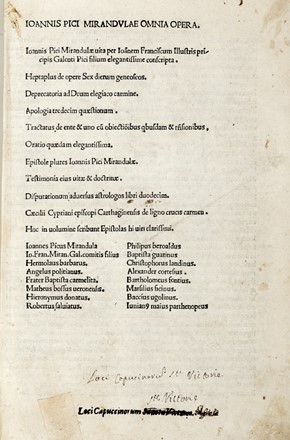 IOANNIS PICI MIRANDVLAE OMNIA OPERA.
Ioannis Pici Mirandulæ uita per Ioãnem Franciscum Illustris pri
cipis Galeoti Pici filium elegantissime conscripta.
Heptaplus de opere Sex dierum geneseos.
Deprecatoria ad Deum elegiaco carmine.
Apologia tredecim quæstionum.
Tractatus de ente & uno cũ obiectiõibus qbusdam & rñsionibus,
Oratio quædam elegantissima.
Epistole plures Ioannis Pici Mirandulæ.
Testimonia eius uitæ & doctrinæ.
Disputationum aduersus astrologos libri duodecim.
Cæcilii Cypriani episcopi Carthaginensis de ligno crucis carmen.
Hoc in uolumine scribunt Epistolas hi uiri clarissimi.
Ioannes Picus Mirandula
Io.Fran.Miran.Gal.comitis filius
Hermolaus barbarus.
Angelus politianus.
Frater Baptista carmelita.
Matheus bossus ueronensis.
Hieronymus donatus.
Robertus saluiatus.
Philipus beroaldus
Baptista guarinus
Christophorus landinus.
Alexander cortesius.
Bartholomeus fontius.
Marsilius ficinus.
Baccius ugolinus.
Iunianus maius parthenopeus
Loci Capucinorum Victorie
Victorie
Loci Capuccinorum